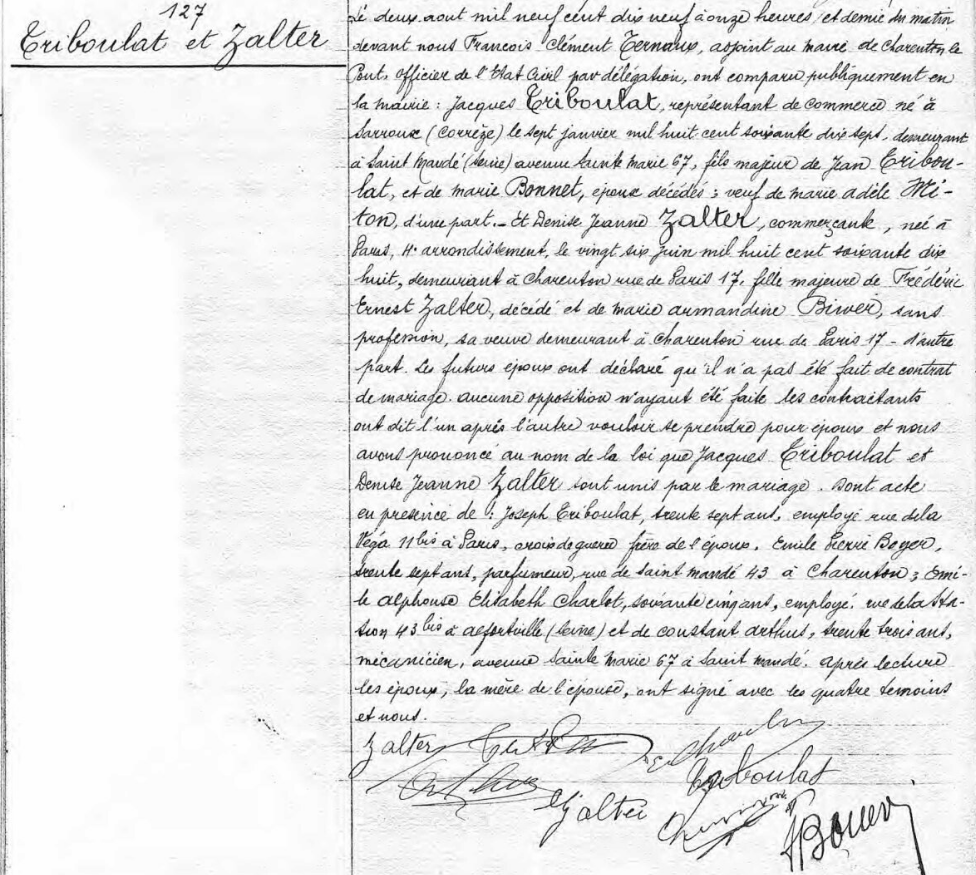 127
Triboulat et Zalter
Le deux aout mil neuf cent dix neuf à onze heures et demie du matin
devant nous Francois Clément Ternaux, adjoint au maire de Charenton le
Pont, officier de l'Etat Civil par délégation, ont comparu publiquement en
la mairie : Jacques Triboulat, représentant de commerce né à
Sarroux (Corrèze) le sept janvier mil huit cent soixante dix sept, demeurant
à Saint Mandé (Seine) avenue Sainte Marie 67, fils majeur de Jean Tribou-
lat, et de Marie Bonnet, époux décédés ; veuf de Marie Adèle Mi-
ton, d'une part. - Et Denise Jeanne Zalter, commerçante, née à
Paris, 4e arrondissement, le vingt six juin mil huit cent soixante dix
huit, demeurant à Charenton rue de Paris 17, fille majeure de Frédéric
Ernest Zalter, décédé et de Marie Armandine Biwer, sans
profession, sa veuve demeurant à Charenton rue de Paris 17 - d'autre
part. Les futurs époux ont déclaré qu'il n'a pas été fait de contrat
de mariage. aucune opposition n'ayant été faite les contractants
ont dit l'un après l'autre vouloir se prendre pour époux et nous
avons prononcé au nom de la loi que Jacques Triboulat et
Denise Jeanne Zalter sont unis par le mariage. Dont acte
en présence de : Joseph Triboulat, trente sept ans, employé rue de la
Véga 11 bis à Paris, croix de guerre frère de l'époux, Emile Pierre Boyer,
trente sept ans, parfumeur, rue de Saint Mandé 43 à Charenton ; Emi-
le Alphonse Elisabeth Charlot, soixante cinq ans, employé, rue de la Sta-
tion 43 bis à Alfortville (Seine) et de Constant Arthus, trente trois ans,
mécanicien, avenue Sainte Marie 67 à Saint Mandé. Après lecture
les époux, la mère de l'épouse, ont signé avec les quatre témoins
et nous.
Zalter
Triboulat
Zalter
Boyer